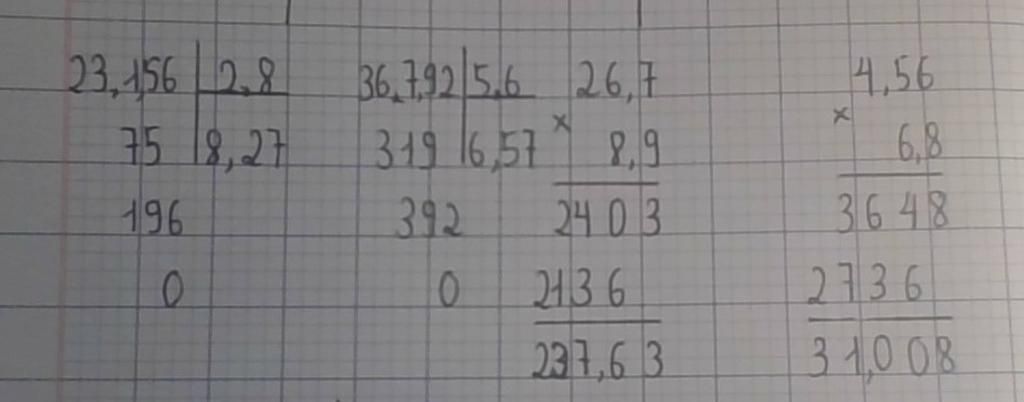 23,156 | 2,8 36,7,92 | 5,6 26,7 4,56
75 | 8,27 319 | 6,57 × 8,9 × 6,8
196 392 2403 3648
0 0 2136 2736
237,63 31,008